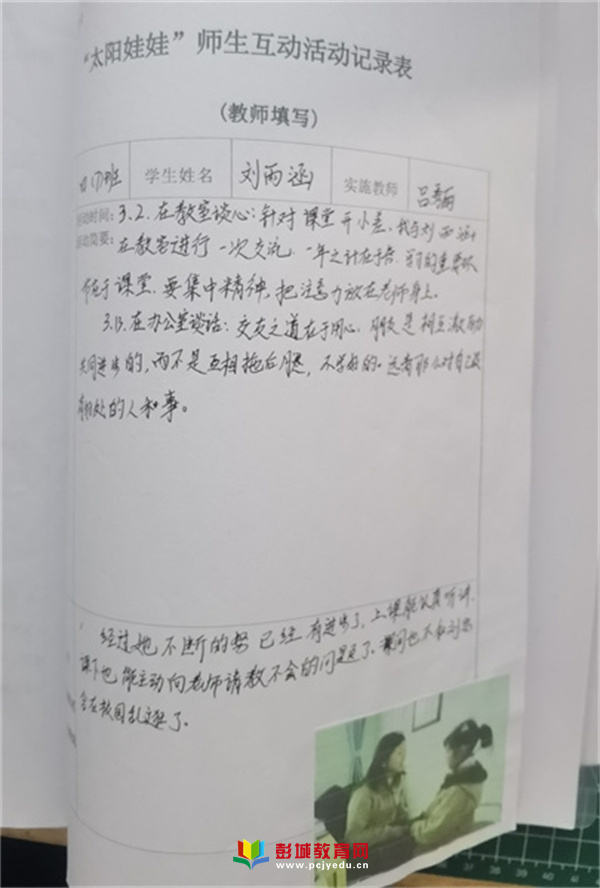 “太阳娃娃”师生互动活动记录表
(教师填写)
班 学生姓名 刘雨涵 实施教师 吕
动时间: 3.2.在教室谈心:针对课堂开小差,我与刘雨涵
动简要: 在教室进行一次交流,一年之计在于春,学习的重要环
节在于课堂,要集中精神,把注意力放在老师身上。
3.13.在办公室谈话:交友之道在于用心,朋友是相互激励
共同进步的,而不是互相拖后腿,不学好的。远离那么对自己没
有好处的人和事。
经过她不断的努 已经有进步了,上课能认真听讲,
课下也能主动向老师请教不会的问题了。课间也不和刘
在校园乱逛了。
彭城教育网
www.pcjyedu.cn